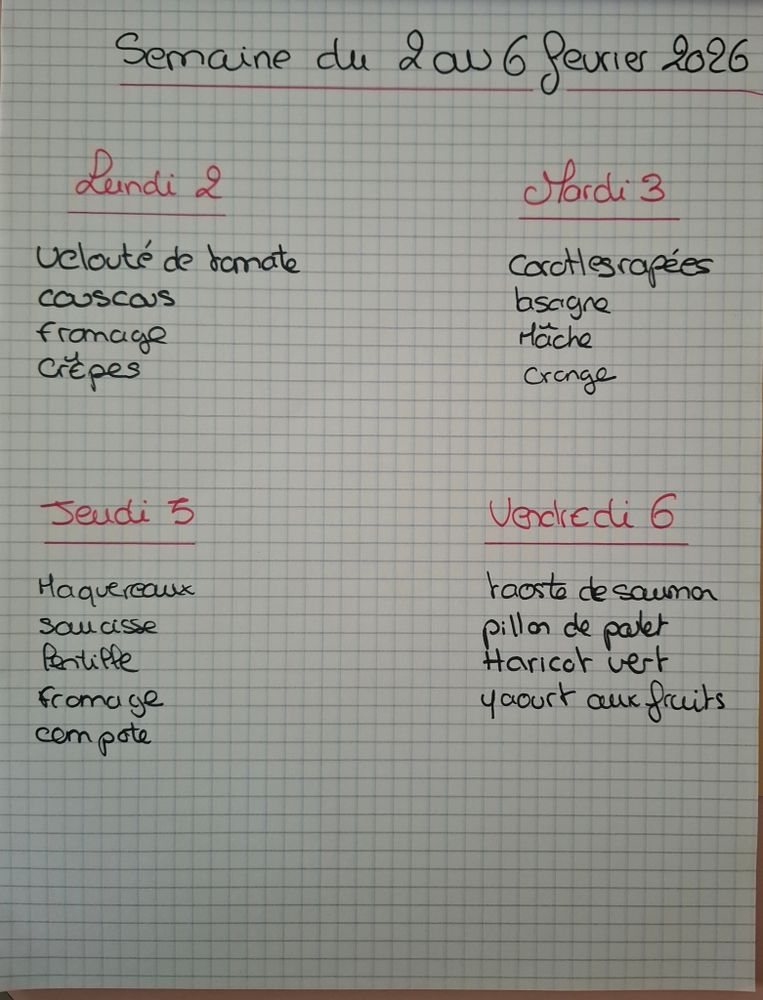 Semaine du 2 au 6 fevrier 2026
Lundi 2
velouté de tomate
couscous
fromage
Crêpes
Mardi 3
carottes rapées
lasagne
Mâche
orange
Jeudi 5
Maquereaux
saucisse
fromage
compote
Vendredi 6
taoste de saumon
pillon de poulet
Haricot vert
yaourt aux fruits